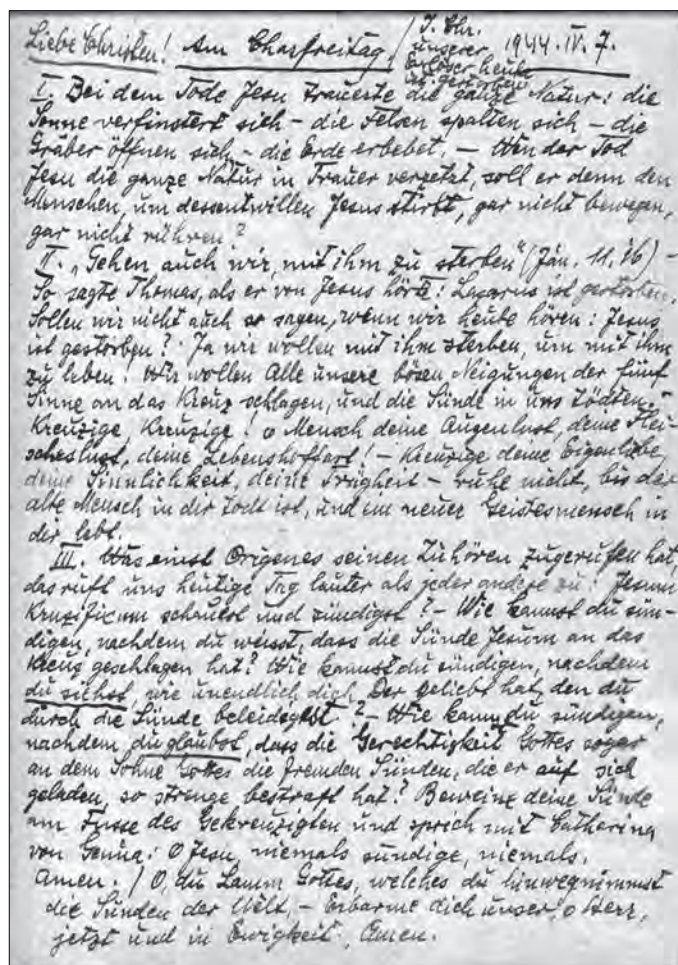 Liebe Christen! Am Charfreitag / J. Chr. unserer Erlöser heute ist gestorben 1944. IV. 7.
I. Bei dem Tode Jesu trauerte die ganze Natur: die
Sonne verfinstert sich – die Felsen spalten sich – die
Gräber öffnen sich, – die Erde erbebet. – Wen der Tod
Jesu die ganze Natur in Trauer versetzt, soll er denn den
Menschen, um dessentwillen Jesus stirbt, gar nicht bewegen,
gar nicht rühren?
II. „Gehen auch wir, mit ihm zu sterben" (Ján. 11.16) –
So sagte Thomas, als er von Jesus hörte: Lazarus ist gestorben.
Sollen wir nicht auch so sagen, wenn wir heute hören: Jesus
ist gestorben? Ja wir wollen mit ihm sterben, um mit ihm
zu leben! Wir wollen Alle unsere bösen Neigungen der fünf
Sinne an das Kreuz schlagen, und die Sünde in uns tödten. –
Kreuzige, Kreuzige! o Mensch deine Augenlust, deine Flei-
scheslust, deine Lebenshoffart! – Kreuzige deine Eigenliebe,
deine Sinnlichkeit, deine Trägheit – ruhe nicht, bis der
alte Mensch in dir todt ist, und ein neuer Geistesmensch in
dir lebt.
III. Was einst Origenes seinen Zuhören zugerufen hat,
das ruft uns heutige Tag lauter als jeder andere zu: Jesum
Kruzificum schauest und sündigst? – Wie kannst du sün-
digen, nachdem du weisst, dass die Sünde Jesum an das
Kreus geschlagen hat? Wie kannst du sündigen, nachdem
du siehst, wie unendlich dich Der geliebt hat, den du
durch die Sünde beleidigst? – Wie kann du sündigen,
nachdem du glaubst, dass die Gerechtigkeit Gottes sogar
an dem Sohne Gottes die fremden Sünden, die er auf sich
geladen, so strenge bestraft hat? Beweine deine Sünde
am Fusse des Gekreuzigten und sprich mit Catharina
von Genua: O Jesu, niemals sündige, niemals.
Amen. / O, du Lamm Gottes, welches du hinwegnimmst
die Sünden der Welt, – Erbarme dich unser, o Herr,
jetzt und in Ewigkeit, Amen.